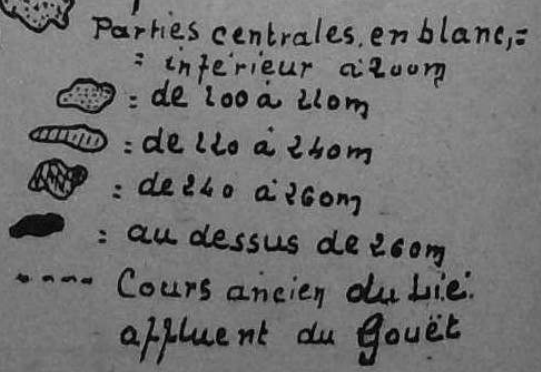 Parties centrales, en blanc, =
= inférieur à 200m
: de 200 à 220m
: de 220 à 240m
: de 240 à 260m
: au dessus de 260m
---- Cours ancien du Lié.
affluent du Gouët